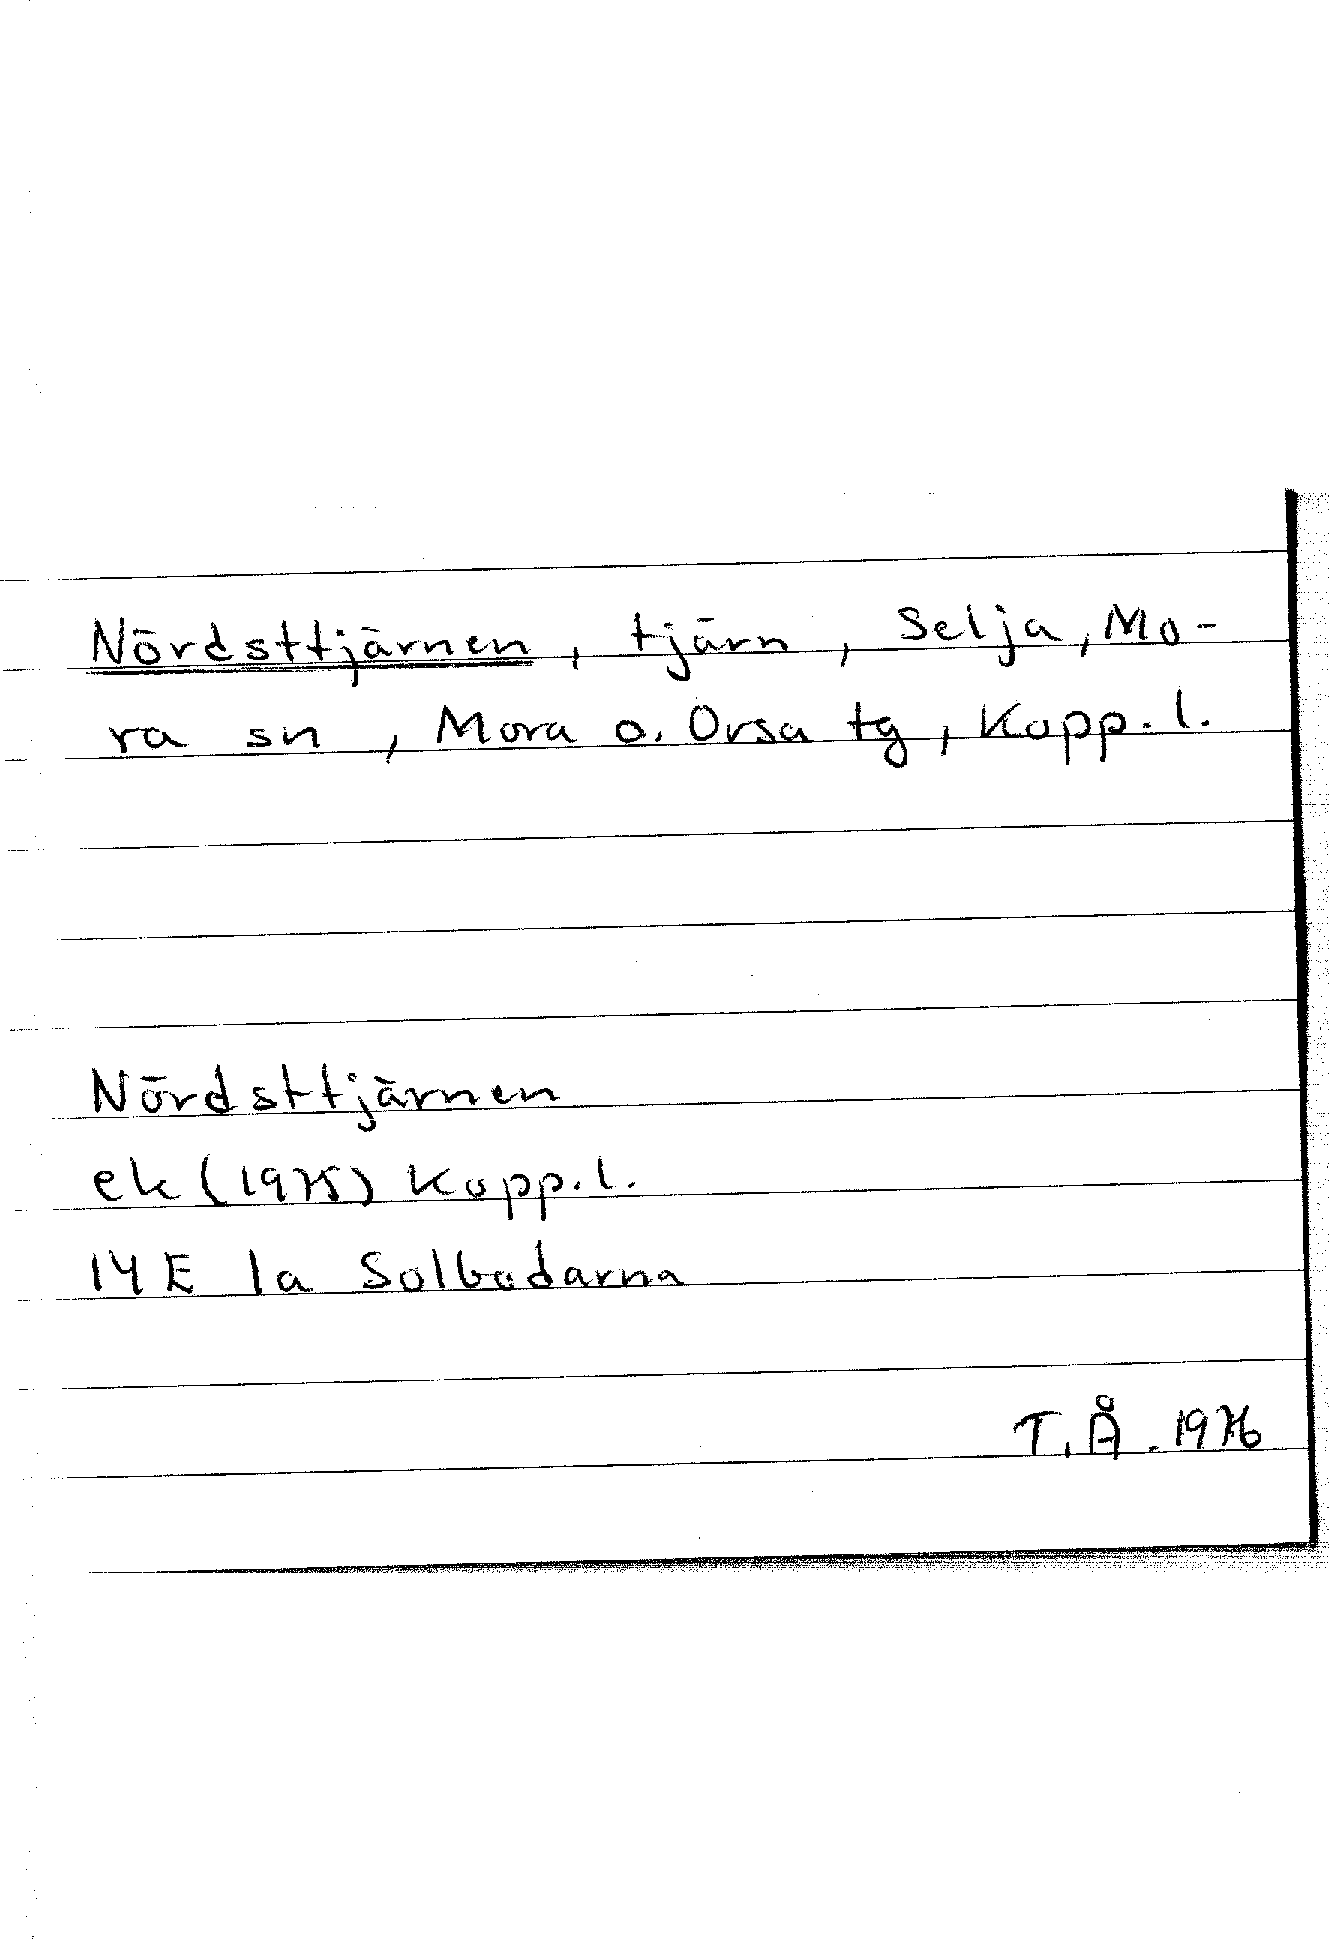 Nördsttjärnen, tjärn, Selja, Mo-
ra sn, Mora o. Orsa tg, Kopp. l.
Nördsttjärnen
ek (1975) Kopp. l.
14 E 1a Solbodarna
T. Å. 1976